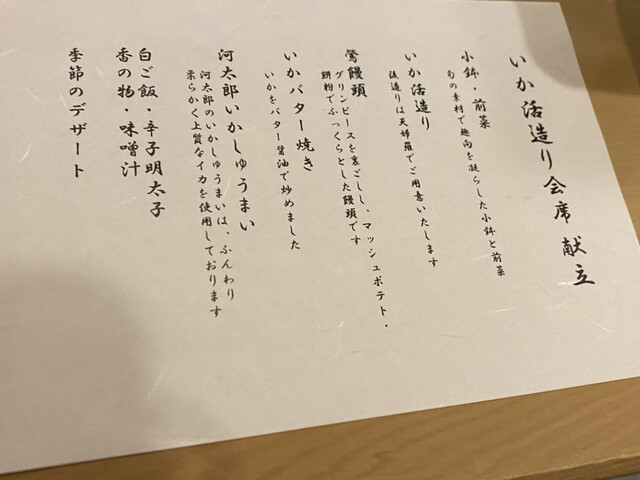 いか活造り会席 献立
小鉢・前菜
旬の素材で趣向を凝らした小鉢と前菜
いか活造り
後造りは天婦羅でご用意いたします
鶯饅頭
グリンピースを裏ごしし、マッシュポテト・
餅粉でふっくらとした饅頭です
いかバター焼き
いかをバター醤油で炒めました
河太郎いかしゅうまい
河太郎のいかしゅうまいは、ふんわり
柔らかく上質なイカを使用しております
白ご飯・辛子明太子
香の物・味噌汁
季節のデザート